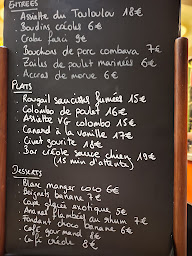 ENTREES
. Assiette du Touloulou 18€
. Boudins créoles 6€
. Crabe farci 9€
. Bouchons de porc combava 7€
. Ailes de poulet marinées 6€
. Accras de morue 6€
PLATS
. Rougail saucisses fumées 15€
. Colombo de poulet 16€
. Assiette VG colombo 15€
. Canard à la vanille 17€
. Civet gourite 18€
. Bar créole sauce chien 19€
(15 min d'attente)
DESSERTS
. Blanc manger coco 6€
. Beignets banane 7€
. Cake glaçée exotique 5€
. Ananas flambées au rhum 7€
. Fondant choco banane 6€
. Café gourmand 8€
. Café créole 8€